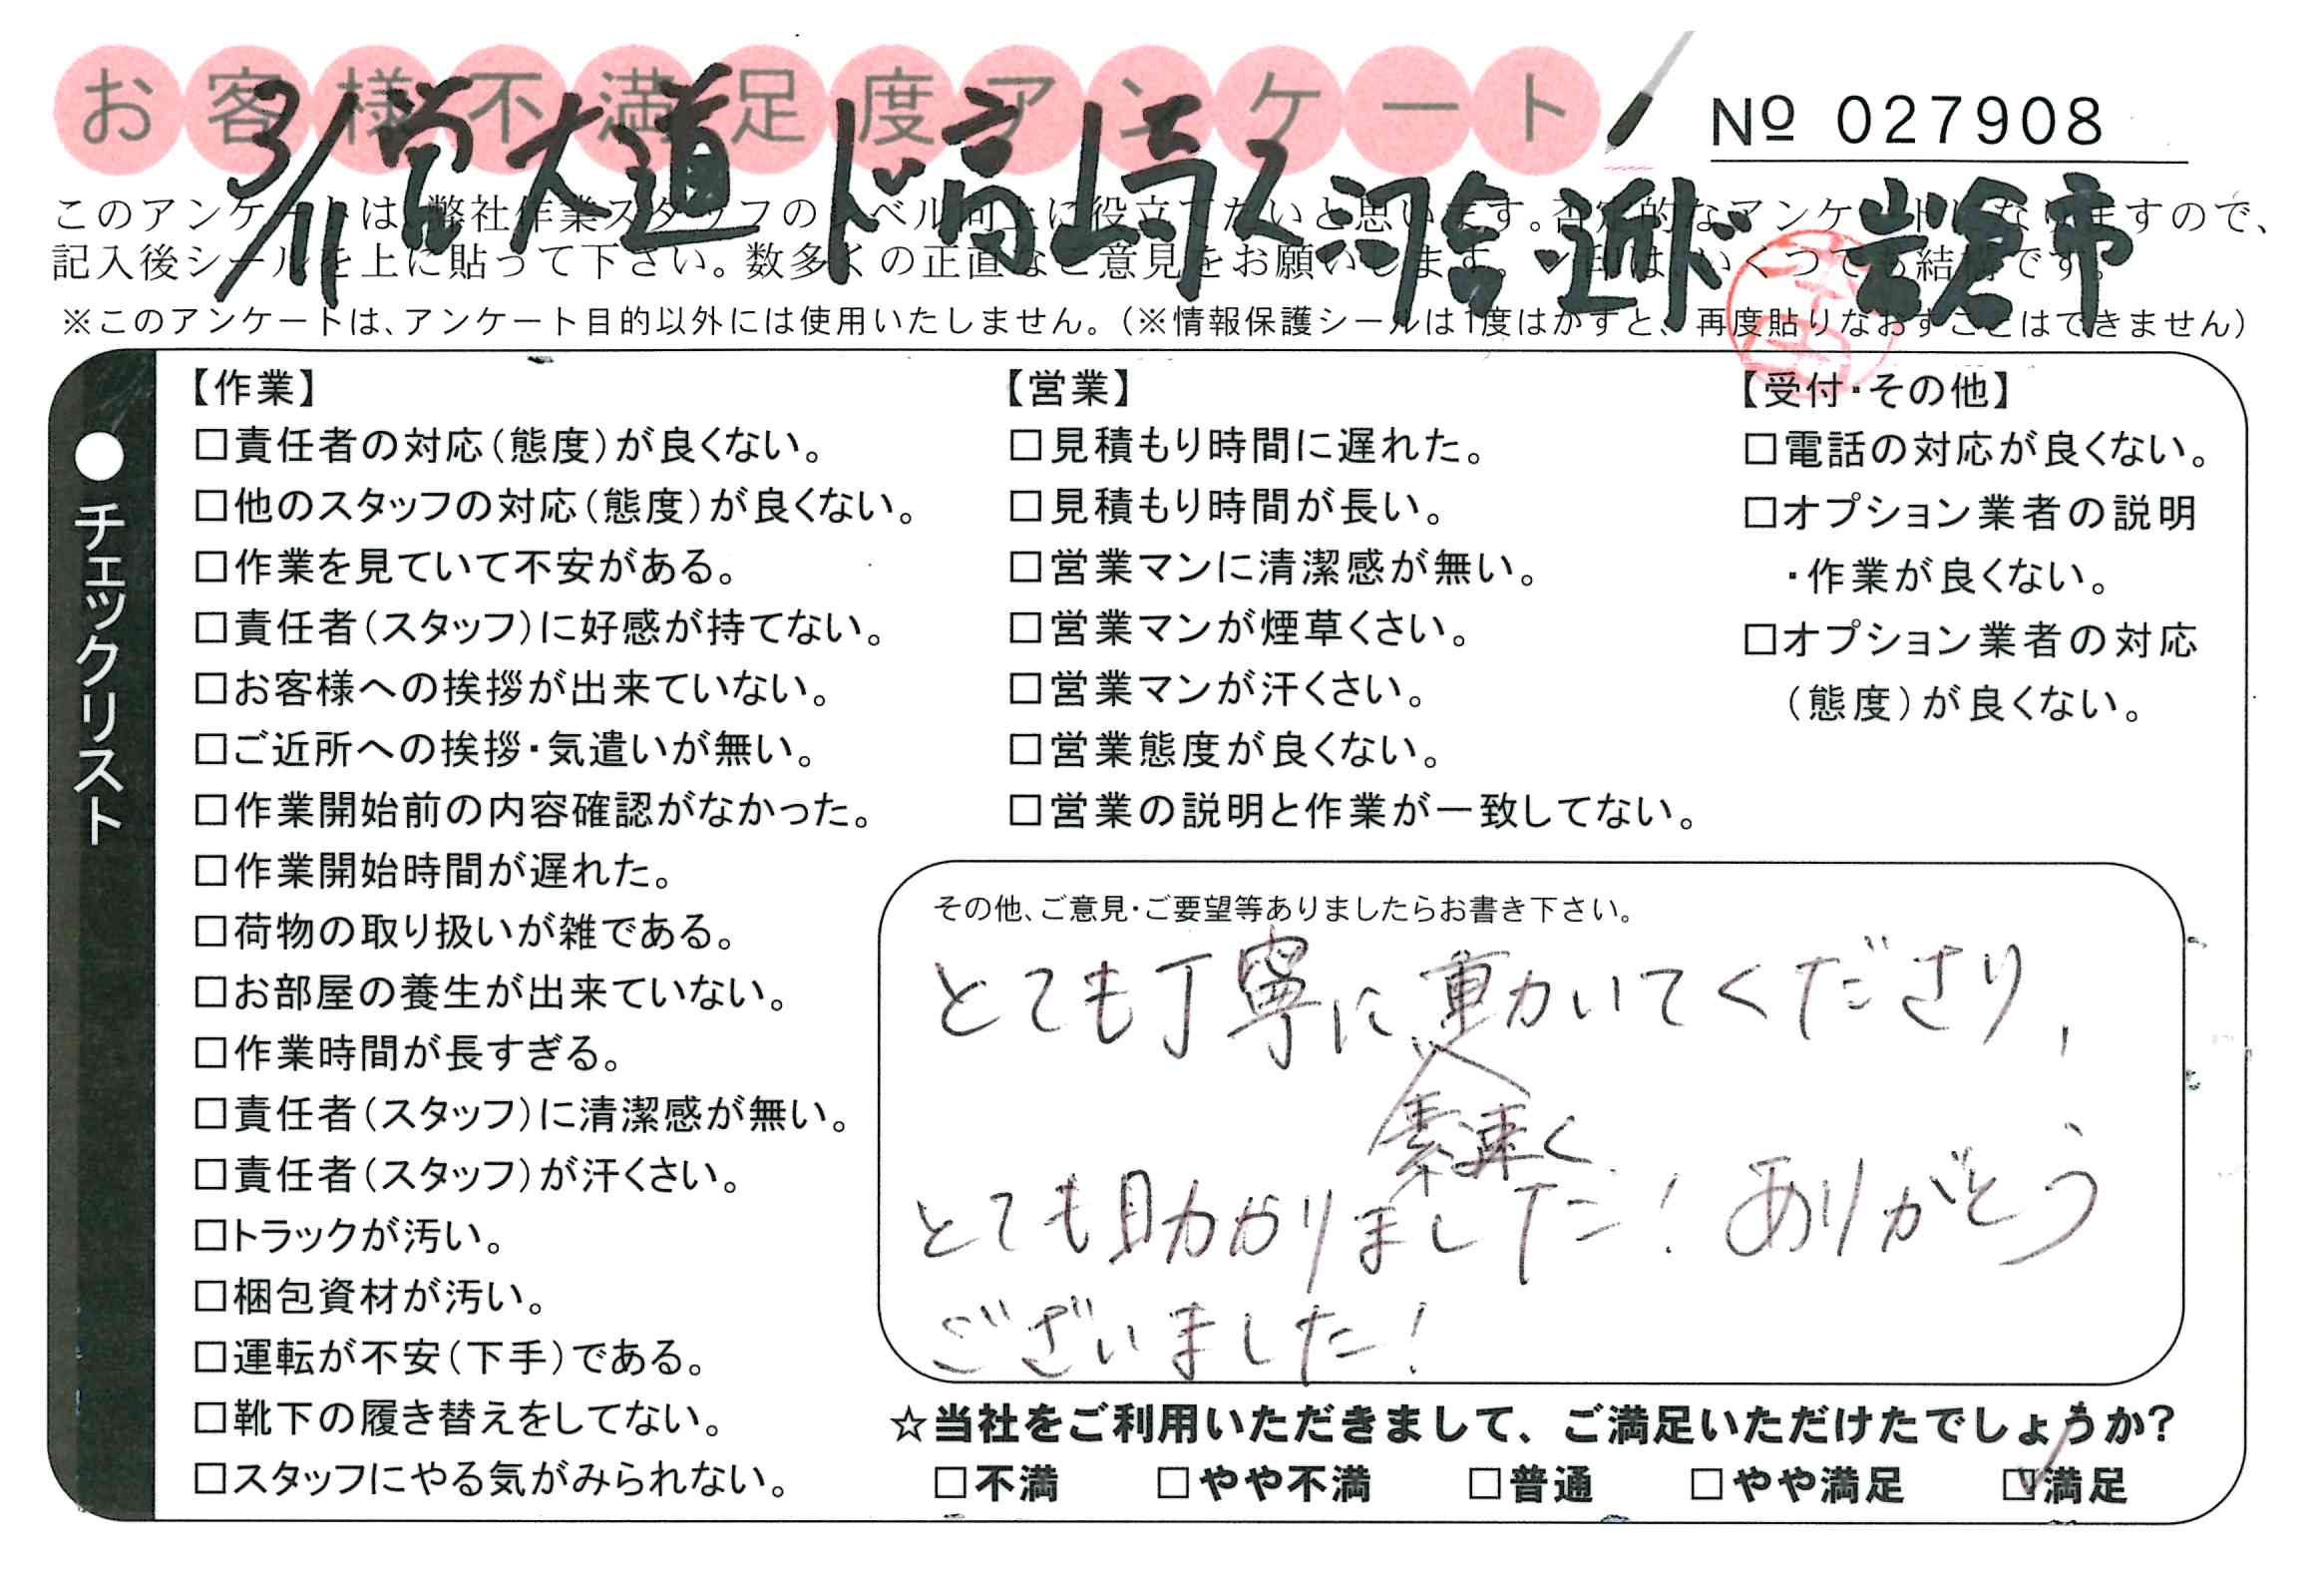 お客様不満足度アンケート
№ 027908
3/11 営大道 ド高崎 ス河合 近ド 岩倉市
このアンケートは、弊社作業スタッフのレベル向上に役立てたいと思います。否定的なアンケートになりますので、
記入後シールを上に貼って下さい。数多くの正直なご意見をお願いします。✓印は、いくつでも結構です。
※このアンケートは、アンケート目的以外には使用いたしません。（※情報保護シールは1度はがすと、再度貼りなおすことはできません）
●チェックリスト
【作業】
□責任者の対応（態度）が良くない。
□他のスタッフの対応（態度）が良くない。
□作業を見ていて不安がある。
□責任者（スタッフ）に好感が持てない。
□お客様への挨拶が出来ていない。
□ご近所への挨拶・気遣いが無い。
□作業開始前の内容確認がなかった。
□作業開始時間が遅れた。
□荷物の取り扱いが雑である。
□お部屋の養生が出来ていない。
□作業時間が長すぎる。
□責任者（スタッフ）に清潔感が無い。
□責任者（スタッフ）が汗くさい。
□トラックが汚い。
□梱包資材が汚い。
□運転が不安（下手）である。
□靴下の履き替えをしてない。
□スタッフにやる気がみられない。
【営業】
□見積もり時間に遅れた。
□見積もり時間が長い。
□営業マンに清潔感が無い。
□営業マンが煙草くさい。
□営業マンが汗くさい。
□営業態度が良くない。
□営業の説明と作業が一致してない。
【受付・その他】
□電話の対応が良くない。
□オプション業者の説明
・作業が良くない。
□オプション業者の対応
（態度）が良くない。
その他、ご意見・ご要望等ありましたらお書き下さい。
とても丁寧に動いてくださり、
素速く
とても助かりました！ありがとう
ございました！
☆当社をご利用いただきまして、ご満足いただけたでしょうか?
□不満 □やや不満 □普通 □やや満足 ☑満足